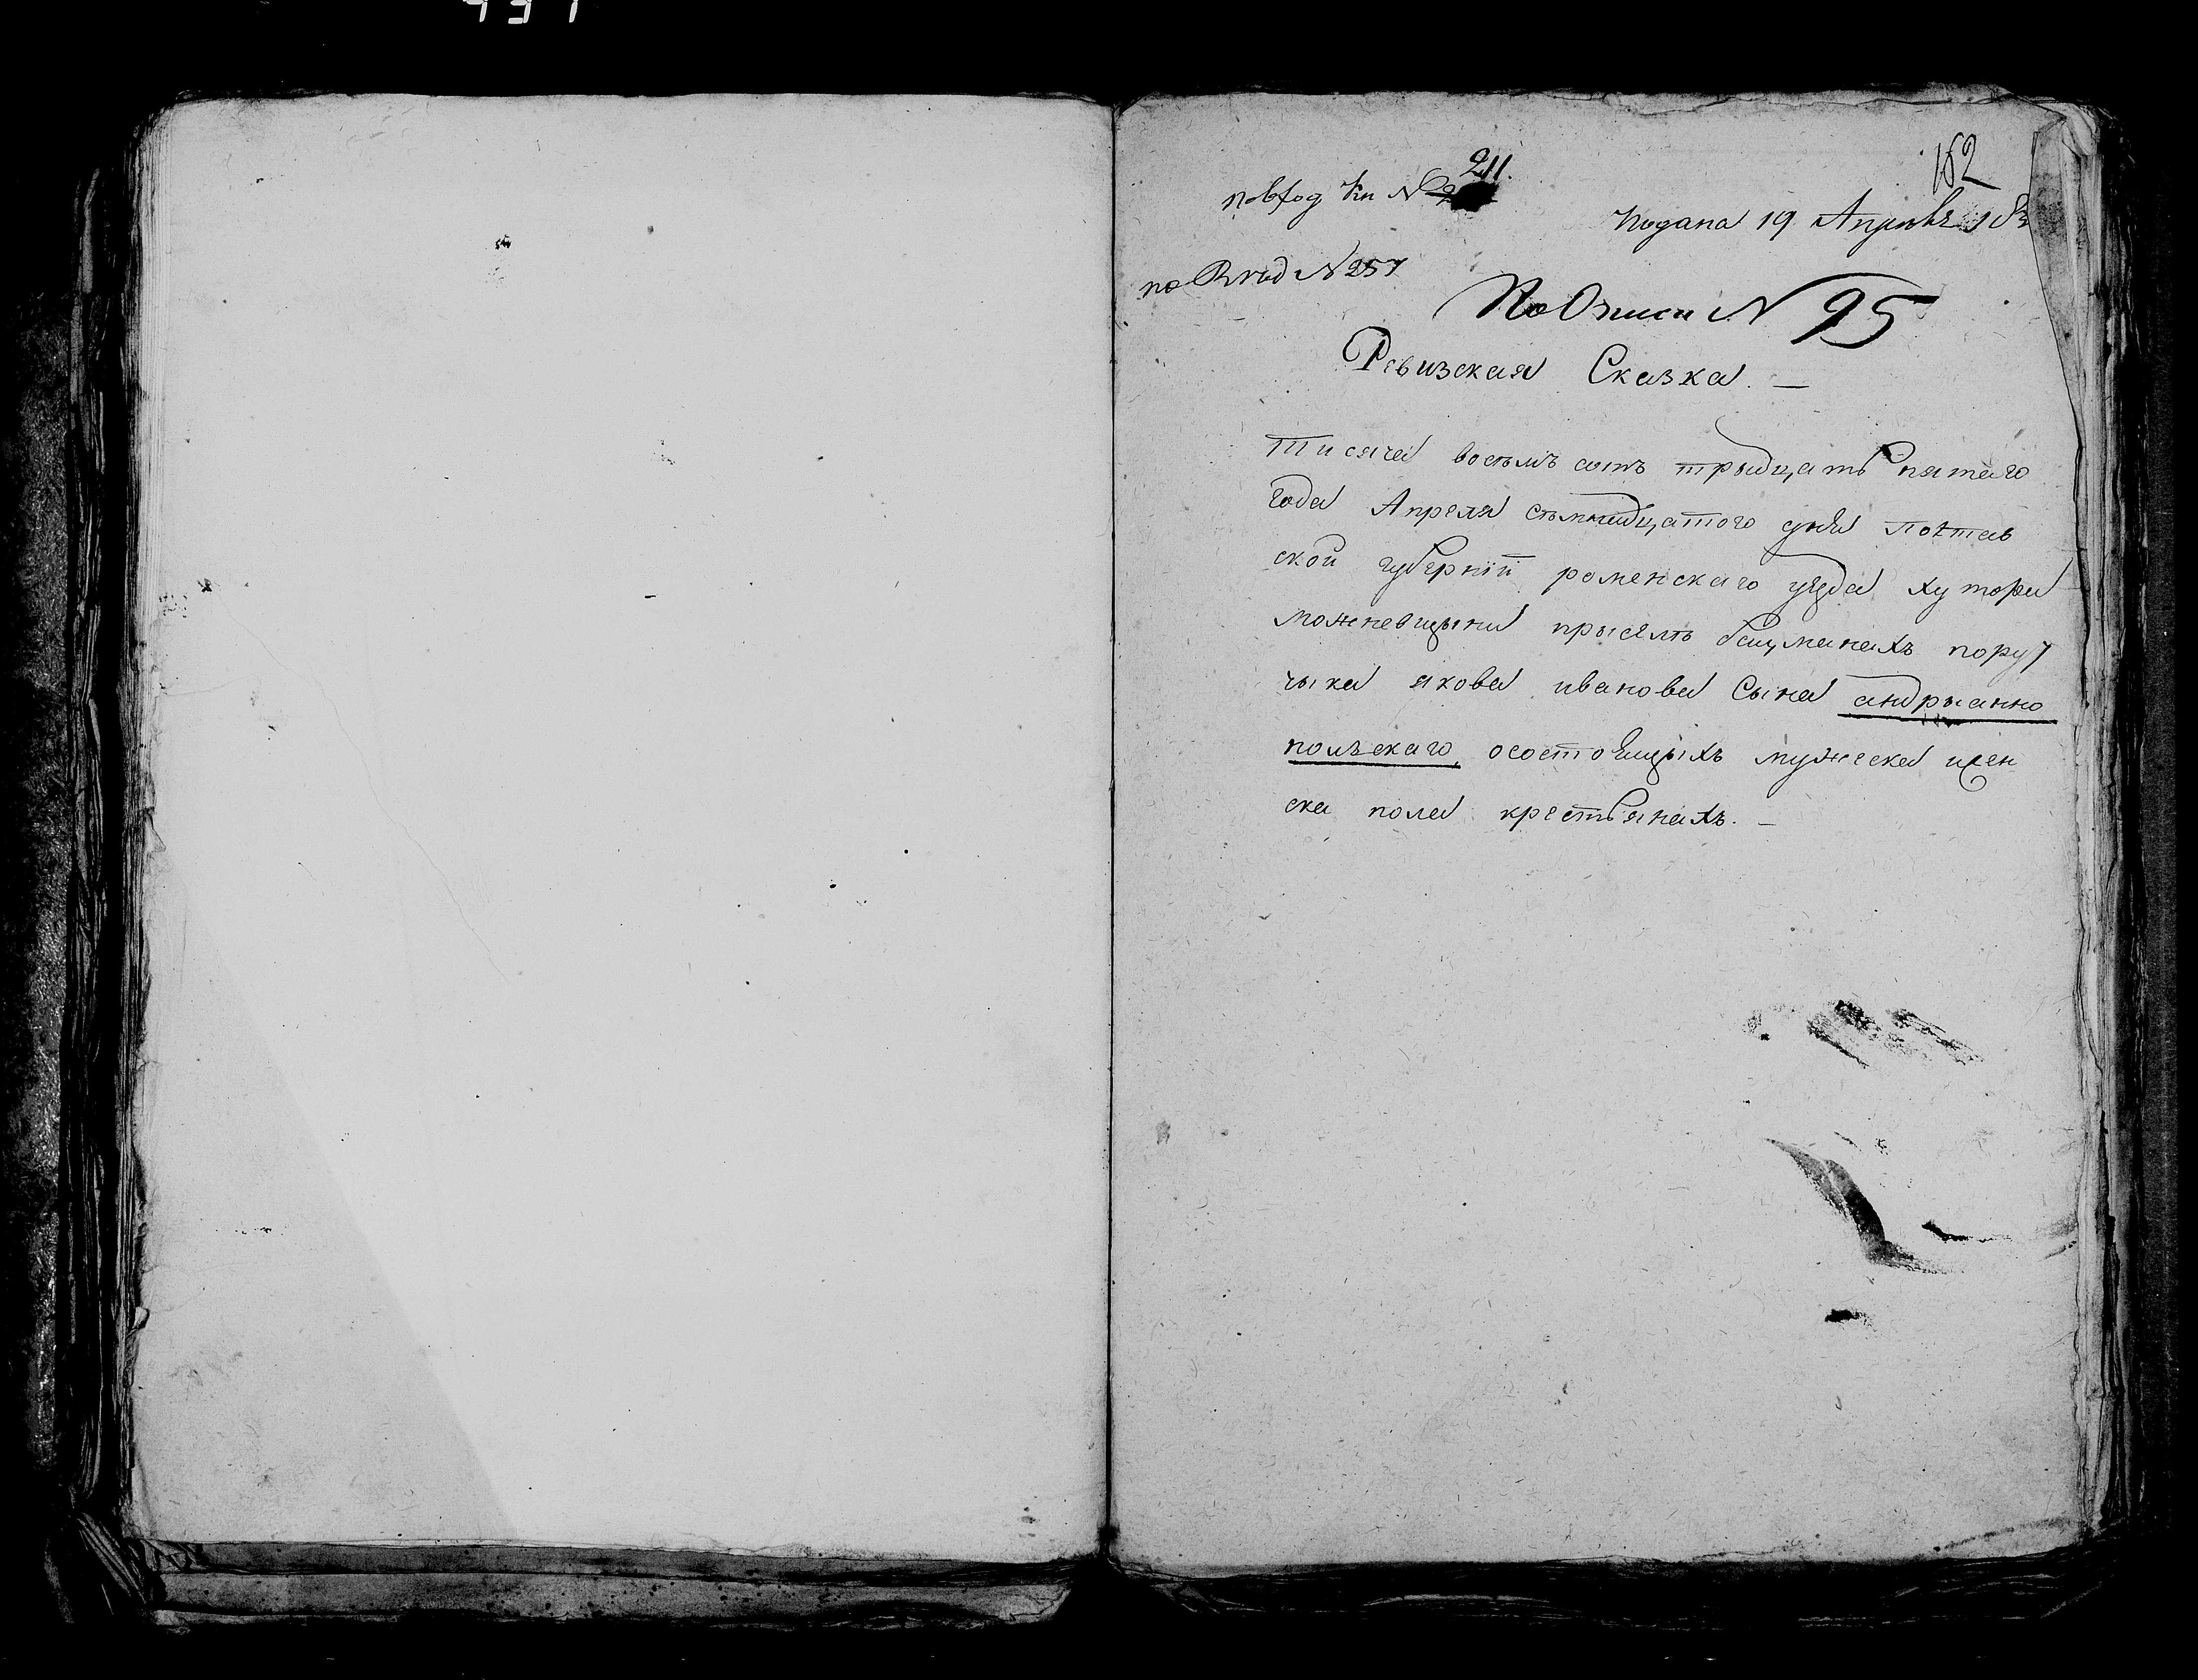 162
211.
по вход Кн №
Подана 19 Апреля 183
по № 257
По Описи № 95
Ревизская Сказка. —
тисяча восъмъ сотъ трыдцать пятаго
года Апреля съмнадцатого дня полтав
ской губерніи роменскаго уезда хутора
можневщыни прыселъ бацманахъ пору
чыка якова иванова Сына андрыанно
полъскаго, осостоящыхъ мужеска ижен
ска пола крестьянахъ. —